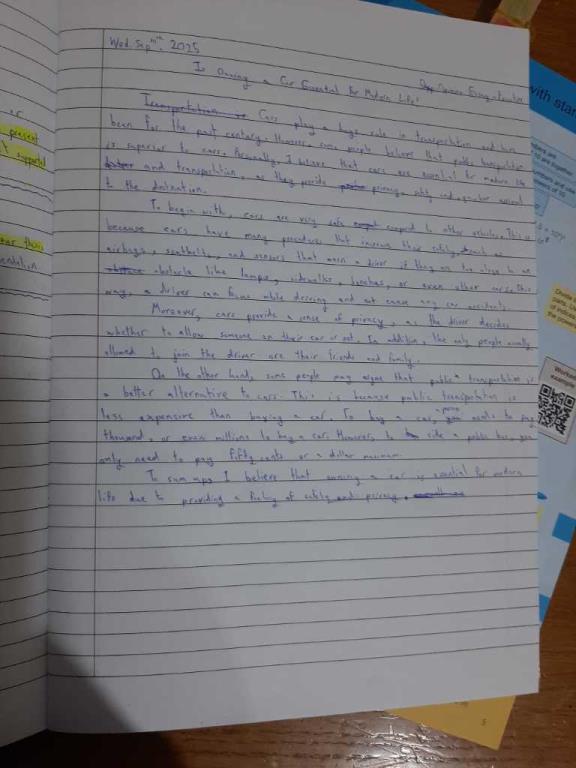 Wed. Sep 2025
Is Owning a Car Essential For Modern Life?
Opinion Essay
Cars play a huge role in transportation and have
been for the past century. However, some people believe that public transportation
is superior to cars. Personally, I believe that cars are essential for modern life
and transportation, as they provide privacy, safety and
to the destination.
To begin with, cars are very safe compared to other vehicles. This is
because cars have many procedures that increase their safety, such as
airbags, seatbelts, and sensors that warn a driver if they are too close to an
obstacle like lamps, sidewalks, benches, or even other cars. This
way, a driver can focus while driving and not cause any car accidents.
Moreover, cars provide a sense of privacy, as the driver decides
whether to allow someone in their car or not. In addition, the only people usually
allowed to join the driver are their friends and family.
On the other hand, some people may argue that public transportation is
a better alternative to cars. This is because public transportation is
less expensive than buying a car. To buy a car, needs to pay
thousand, or even millions to buy a car. However, to ride a public bus, you
only need to pay fifty cents or a dollar maximum.
To sum up, I believe that owning a car is essential for modern
life due to providing a feeling of safety and privacy.
present
supported
with star
Worked
example
5